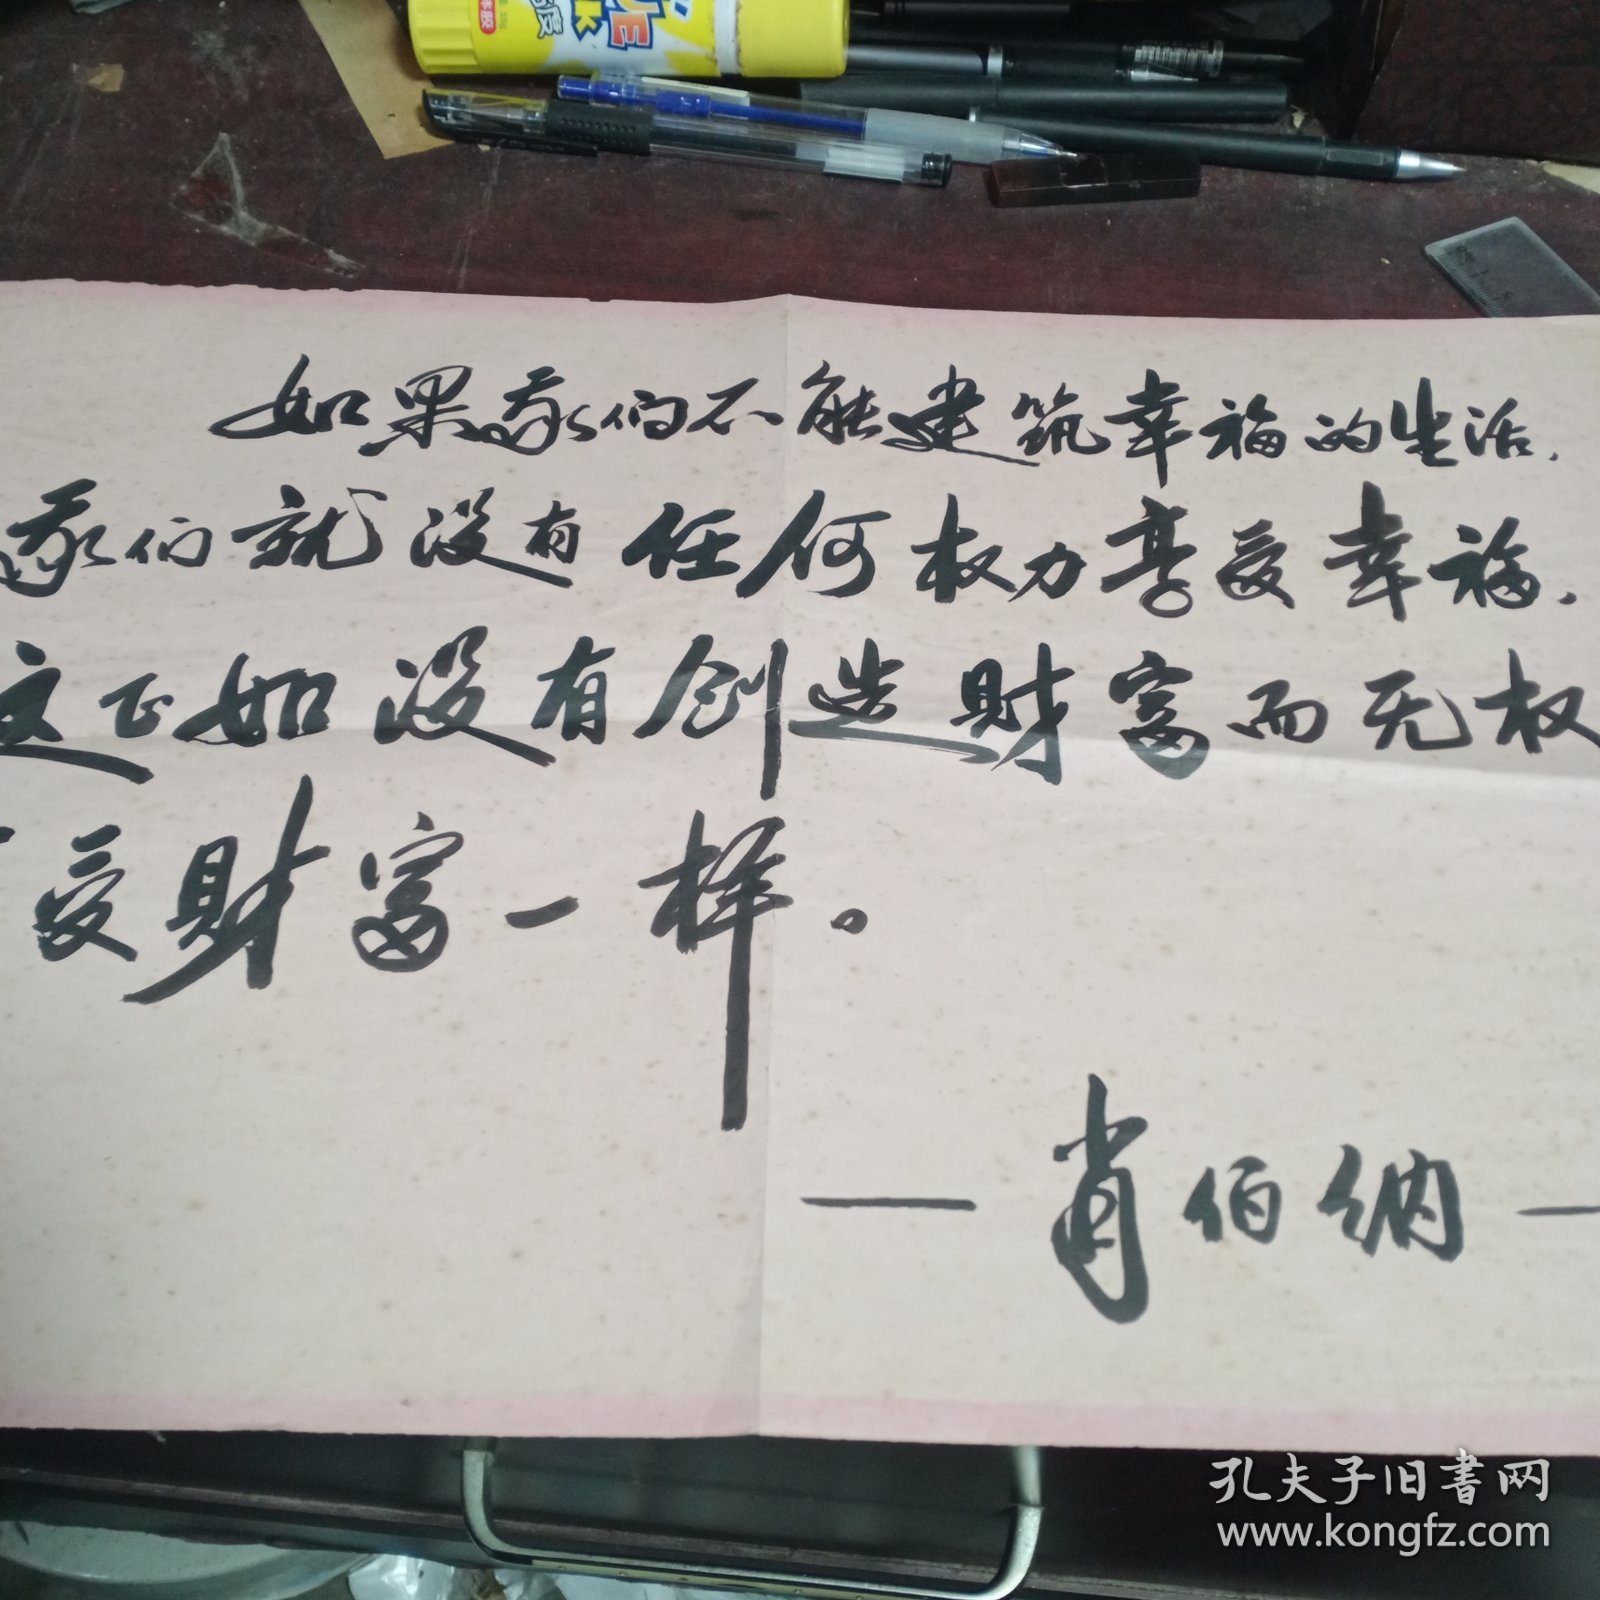 如果我们不能建筑幸福的生活，
我们就没有任何权力享受幸福，
这正如没有创造财富而无权
受财富一样。
— 肖伯纳 —
孔夫子旧书网
www.kongfz.com